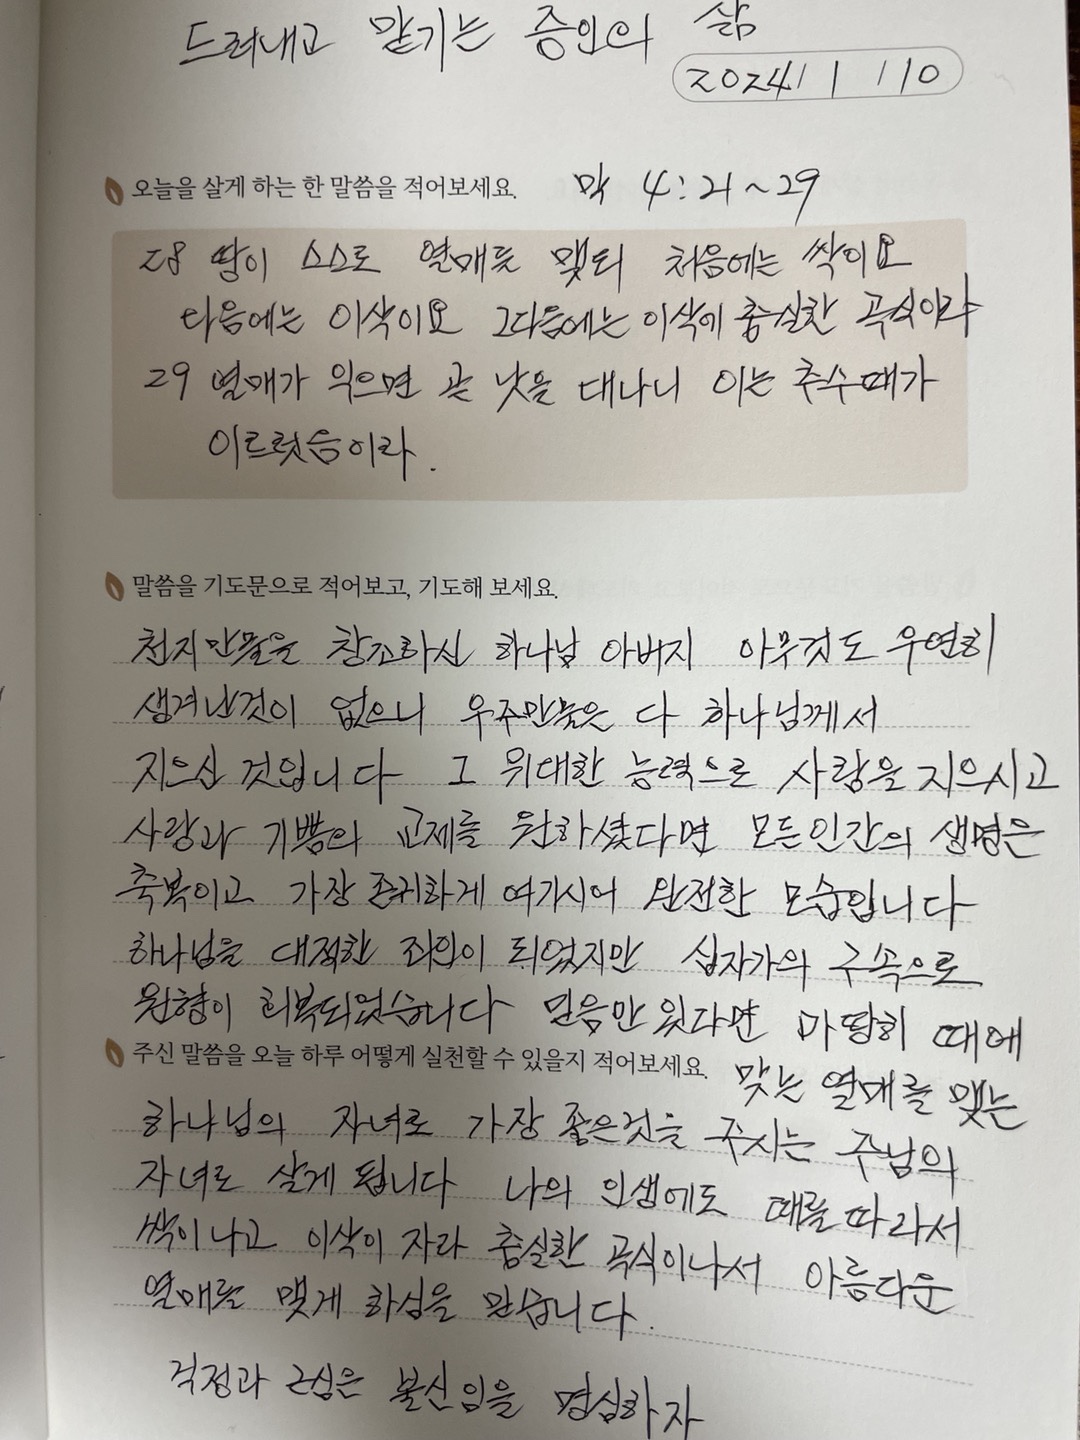 드러내고 맡기는 증인의 삶
2024/ 1 /10
오늘을 살게 하는 한 말씀을 적어보세요. 막 4:21~29
28 땅이 스스로 열매를 맺되 처음에는 싹이요
다음에는 이삭이요 그다음에는 이삭에 충실한 곡식이라
29 열매가 익으면 곧 낫을 대나니 이는 추수때가
이르렀음이라.
말씀을 기도문으로 적어보고, 기도해 보세요.
천지만물을 창조하신 하나님 아버지 아무것도 우연히
생겨난것이 없으니 우주만물은 다 하나님께서
지으신 것입니다 그 위대한 능력으로 사람을 지으시고
사랑과 기쁨의 교제를 원하셨다면 모든인간의 생명은
축복이고 가장 존귀하게 여기시어 완전한 모습입니다
하나님을 대적한 죄인이 되었지만 십자가의 구속으로
원형이 회복되었습니다 믿음만 있다면 마땅히 때에
주신 말씀을 오늘 하루 어떻게 실천할 수 있을지 적어보세요. 맞는 열매를 맺는
하나님의 자녀로 가장 좋은것을 주시는 주님의
자녀로 살게 됩니다 나의 인생에도 때를 따라서
싹이 나고 이삭이 자라 충실한 곡식이나서 아름다운
열매를 맺게 하심을 믿습니다.
걱정과 근심은 불신임을 명심하자